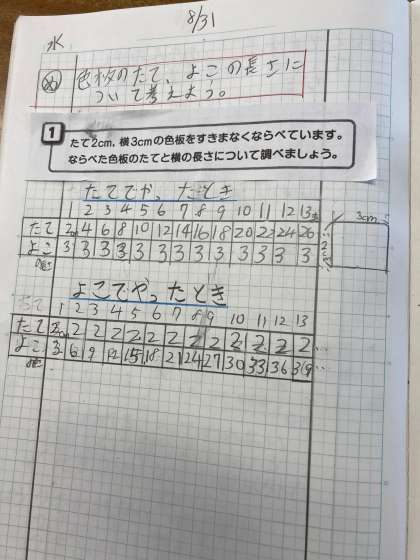 8/31
水
め 色板のたて、よこの長さに
ついて考えよう。
1 たて2cm,横3cmの色板をすきまなくならべています。
ならべた色板のたてと横の長さについて調べましょう。
たてでやったとき
1 2 3 4 5 6 7 8 9 10 11 12 13
3cm
たて 2 4 6 8 10 12 14 16 18 20 22 24 26
よこ 3 3 3 3 3 3 3 3 3 3 3 3 3
よこでやったとき
1 2 3 4 5 6 7 8 9 10 11 12 13
たて 2 2 2 2 2 2 2 2 2 2 2 2 2 …
よこ 3 6 9 12 15 18 21 24 27 30 33 36 39 …